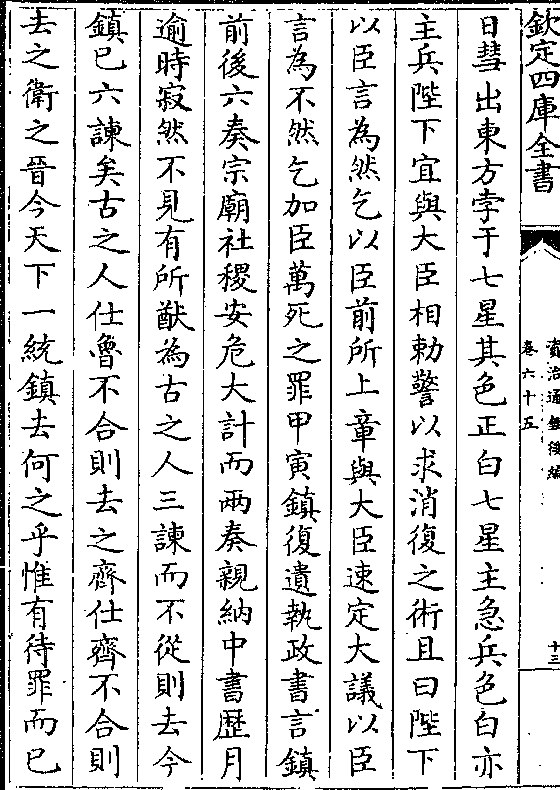 欽定四庫全書
資治通鑑後編
卷六十五
十三
日彗出東方孛于七星其色正白七星主急兵色白亦
主兵陛下宜與大臣相勑警以求消復之術且曰陛下
以臣言為然乞以臣前所上章與大臣速定大議以臣
言為不然乞加臣萬死之罪甲寅鎮復遺執政書言鎮
前後六奏宗廟社稷安危大計而兩奏親納中書歴月
逾時寂然不見有所猷為古之人三諫而不從則去今
鎮已六諫矣古之人仕魯不合則去之齊仕齊不合則
去之衛之晉今天下一統鎮去何之乎惟有待罪而已